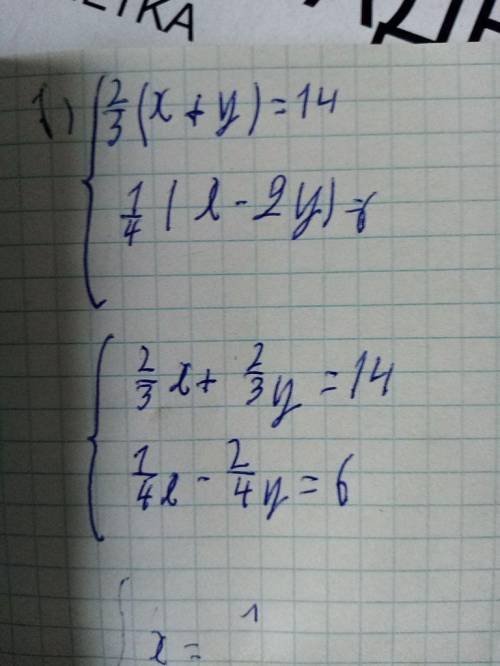 ETKA
1) { 2/3 (x + y) = 14
1/4 (x - 2y) = 6
{ 2/3 x + 2/3 y = 14
1/4 x - 2/4 y = 6
{ 1
x =